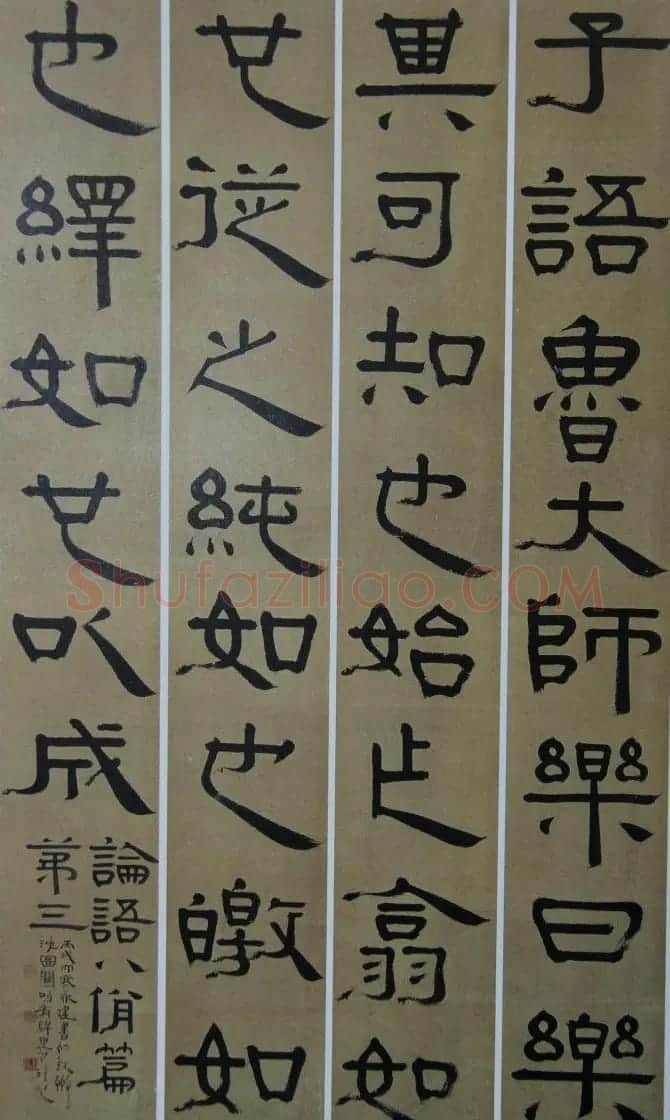 子語魯大師樂曰樂
其可知也始乍翕如
也從之純如也皦如
也繹如也以成
論語八佾篇
第三
丙戌
Shufaziliao.COM